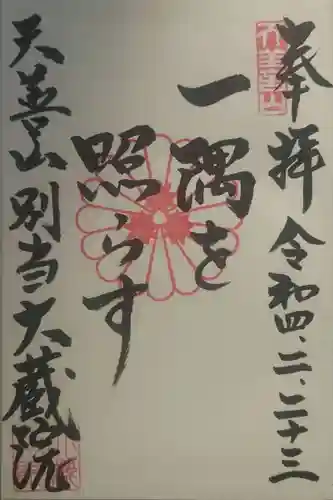 奉拝 令和四、二、二十三
一隅を
照らす
天善山 別当大蔵院